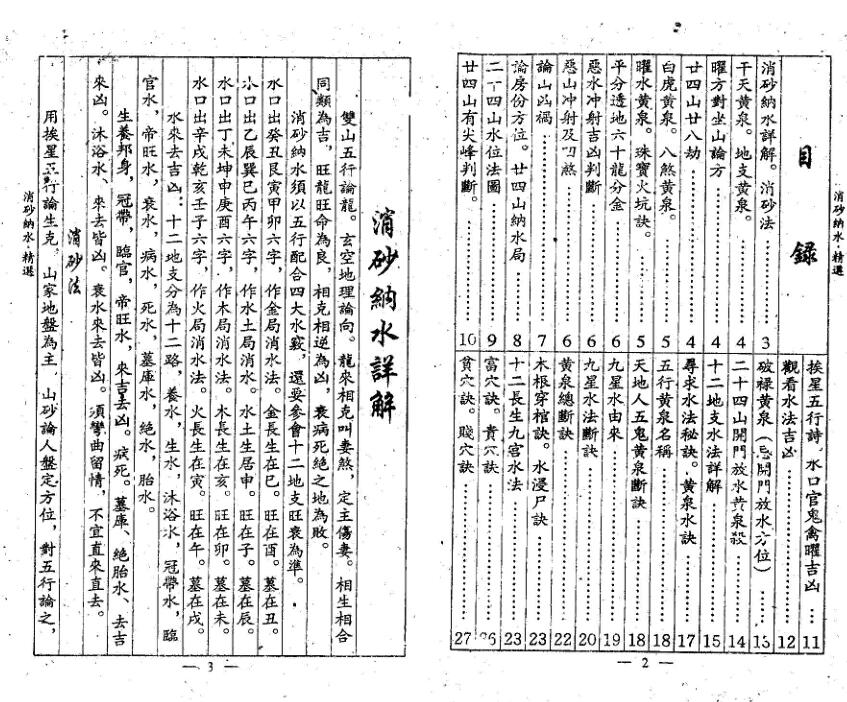 消砂納水·精選
目錄
消砂納水詳解。消砂法…………3
干天黃泉。地支黃泉。…………4
曜方對坐山論方…………4
廿四山廿八劫…………4
白虎黃泉。八煞黃泉。…………5
曜水黃泉。珠寶火坑訣。…………5
平分透地六十龍分金…………6
惡水冲射吉凶判斷…………6
惡山冲射及凹煞…………6
論山凶禍…………7
論房份方位。廿四山納水局…………8
二十四山水位法圖…………9
廿四山有尖峰判斷。…………10
挨星五行詩。水口官鬼禽曜吉凶…11
觀看水法吉凶…………12
破祿黃泉（忌開門放水方位）……13
二十四山開門放水黃泉殺…………14
十二地支水法詳解…………15
尋求水法秘訣。黃泉水訣…………17
五行黃泉名稱…………18
天地人五鬼黃泉斷訣…………18
九星水由來…………19
九星水法斷訣…………20
黃泉總斷訣…………22
木根穿棺訣。水浸尸訣…………23
十二長生九宮水法…………23
富穴訣。貴穴訣…………26
貧穴訣。賤穴訣…………27
— 2 —
消砂納水詳解
雙山五行論龍。玄空地理論向。龍來相克叫妻煞，定主傷妻。相生相合
同類為吉，旺龍旺命為良，相克相逆為凶，衰病死絕之地為敗。
消砂納水須以五行配合四大水竅，還要參會十二地支旺衰為準。
水口出癸丑艮寅甲卯六字，作金局消水法。金長生在巳。旺在酉。墓在丑。
水口出乙辰巽巳丙午六字，作水土局消水。水土生居申。旺在子。墓在辰。
水口出丁未坤申庚酉六字，作木局消水法。木長生在亥。旺在卯。墓在未。
水口出辛戌乾亥壬子六字，作火局消水法。火長生在寅。旺在午。墓在戌。
水來去吉凶：十二地支分為十二路，養水，生水，沐浴水，冠帶水，臨
官水，帝旺水，衰水，病水，死水，墓庫水，絕水，胎水。
生養邦身，冠帶，臨官，帝旺水，來吉去凶。病死。墓庫、絕胎水、去吉
來凶。沐浴水、來去皆凶。衰水來去皆凶。須彎曲留情，不宜直來直去。
消砂法
用挨星五行論生克。山家地盤為主，山砂論人盤定方位，對五行論之，
消砂納水·精選
— 3 —